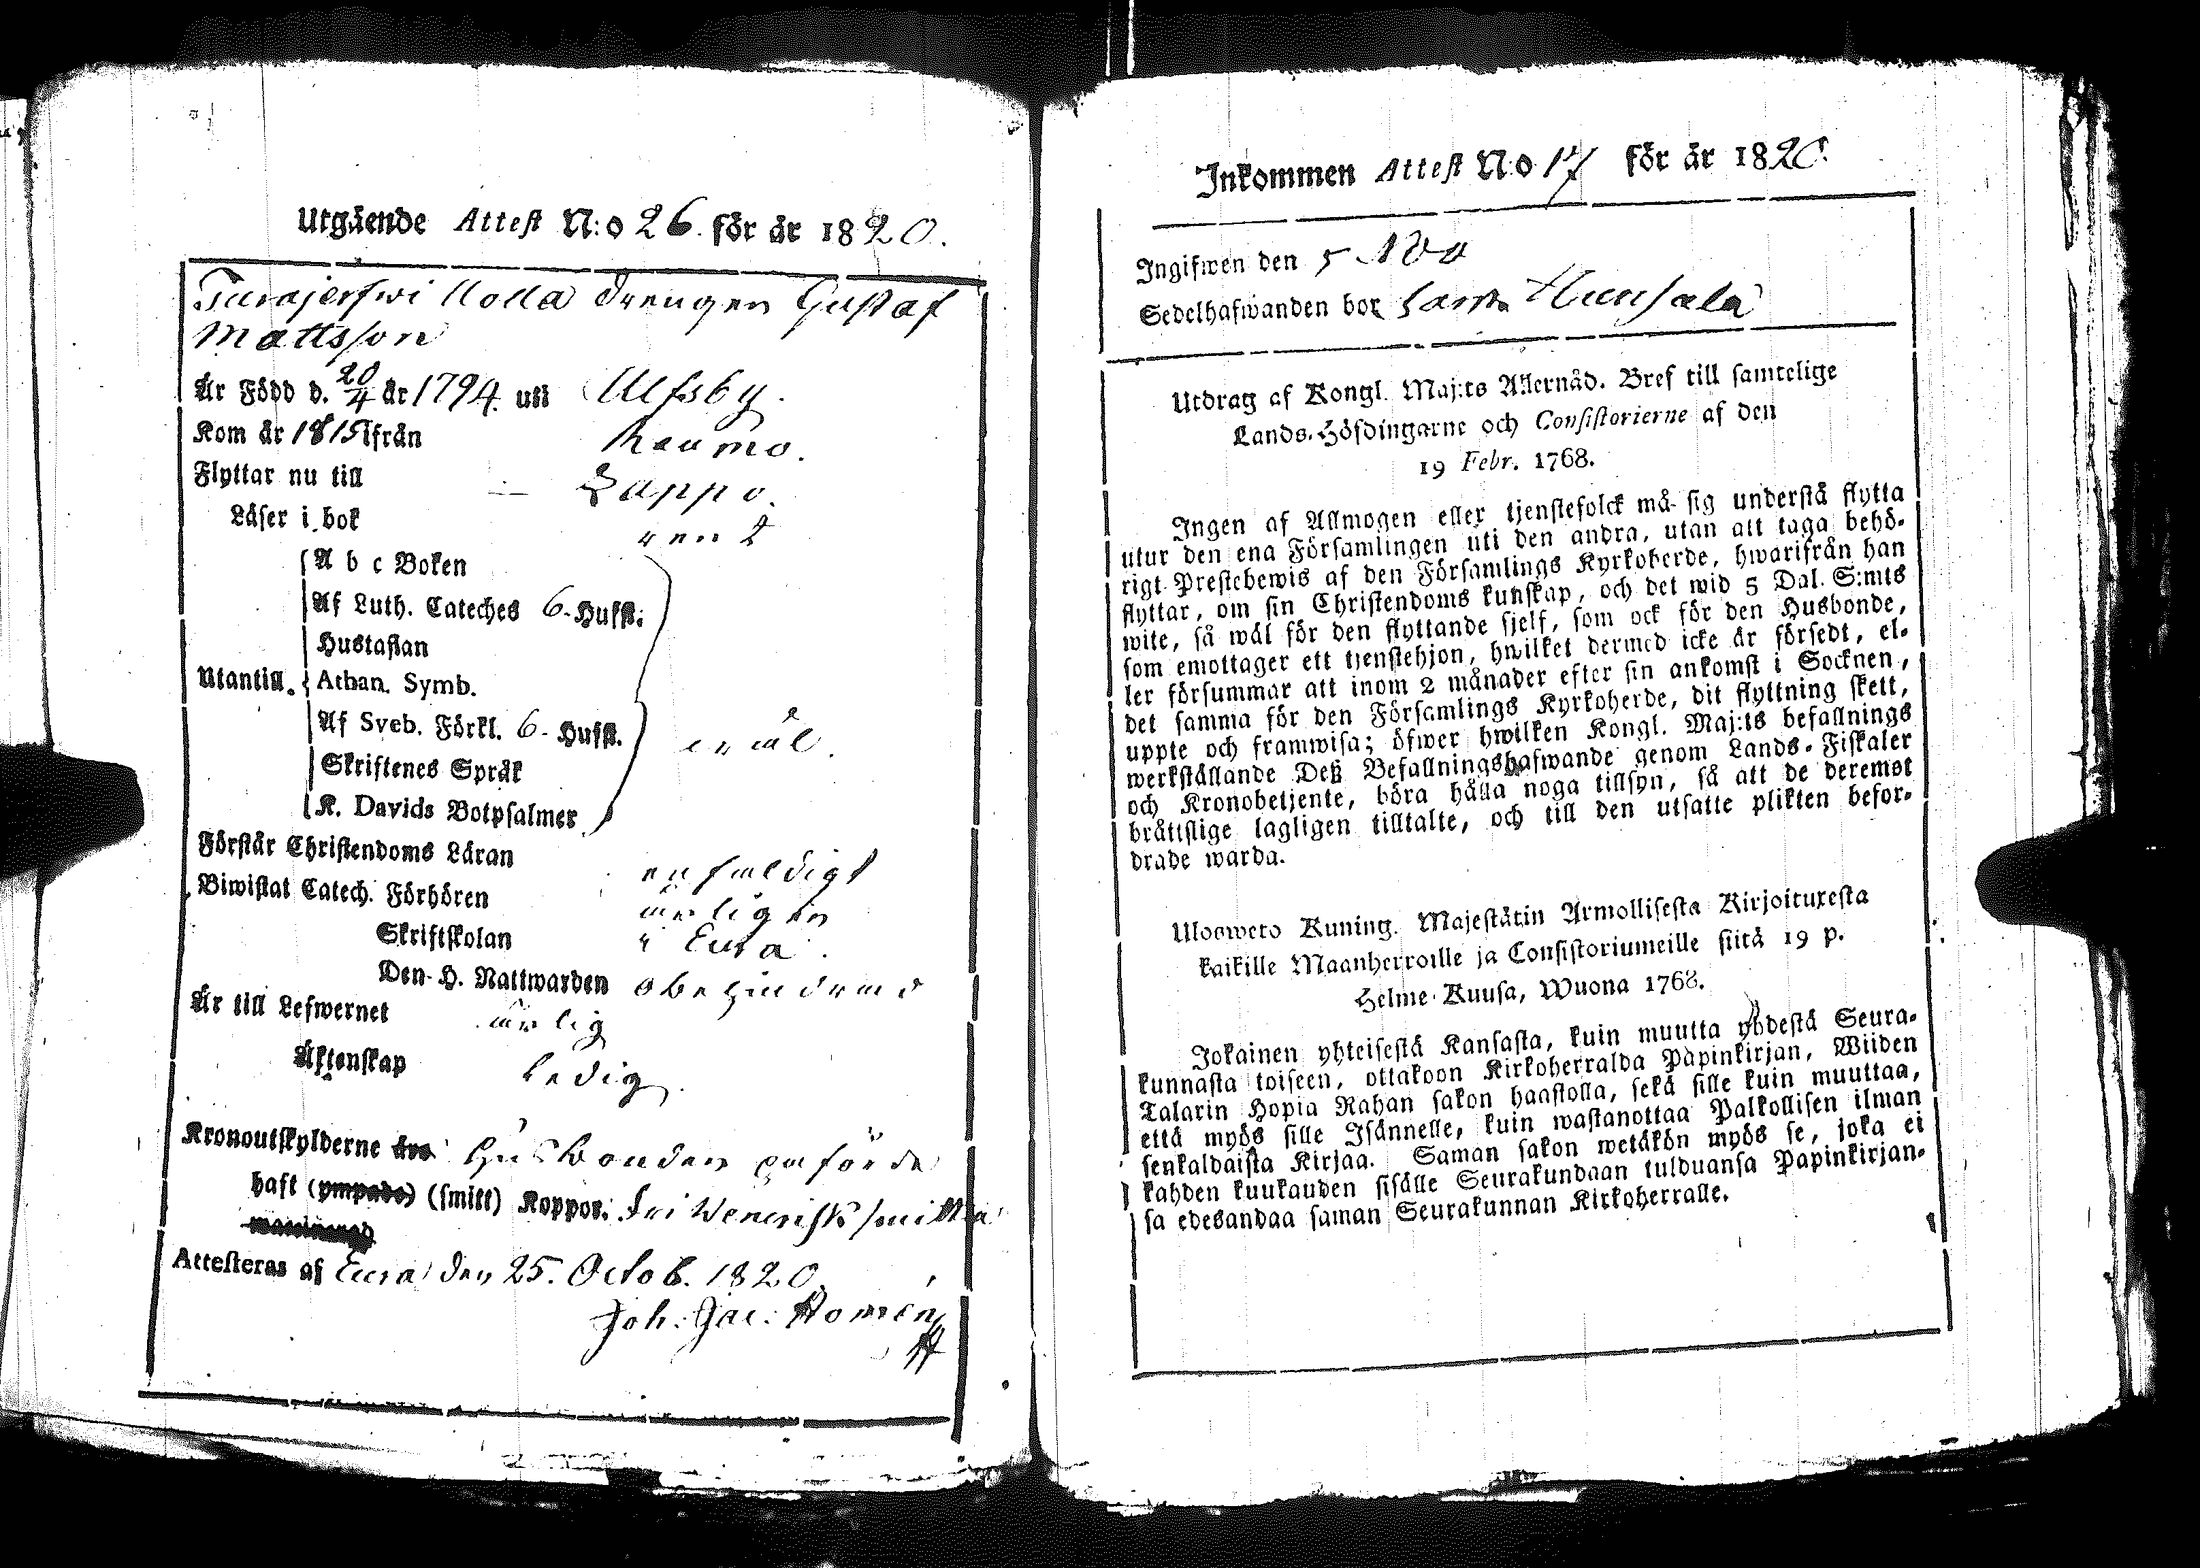 Utgående Attest N:o 26. för år 1820.
Turajerfwi Rolla drengen Gustaf
Mattsson
Är Född d. 20/4 år 1794 uti Ulfsby.
Kom år 1815 ifrån Raumo.
Flyttar nu till — Lappo.
Läser i bok rent
A b c Boken
Af Luth. Cateches 6-Hufst.
Hustaflan
Utantill. Athan. Symb.
Af Sveb. Förkl. 6-Hufst.
Skriftenes Språk
K. Davids Botpsalmer
Förstår Christendoms Läran enfaldigt
Biwistat Catech. Förhören årligen
Skriftskolan i Eura.
Den H. Nattwarden obehindrad
Är till Lefwernet ärlig
Äktenskap Ledig.
Kronoutskylderne äro Husbonden påförde
haft (ympade) (smitt) Koppor. fri Wenerisk smitta
Attesteras af Eura den 25. Octob. 1820.
Joh. Jac. Homén
Inkommen Attest N:o 17 för år 1820.
Ingifwen den 5 Nov
Sedelhafwanden bor Hunsala
Utdrag af Kongl. Maj:ts Allernåd. Bref till samtelige
Lands-Höfdingarne och Consistorierne af den
19 Febr. 1768.
Ingen af Allmogen eller tjenstefolck må sig understå flytta
utur den ena Församlingen uti den andra, utan att taga behö-
rigt Prestebewis af den Församlings Kyrkoherde, hwarifrån han
flyttar, om sin Christendoms kunskap, och det wid 5 Dal. S:mts
wite, så wäl för den flyttande sjelf, som ock för den Husbonde,
som emottager ett tjenstehjon, hwilket dermed icke är försedt, el-
ler försummar att inom 2 månader efter sin ankomst i Socknen,
det samma för den Församlings Kyrkoherde, dit flyttning skett,
uppte och framwisa; öfwer hwilken Kongl. Maj:ts befallnings
werkställande Deß Befallningshafwande genom Lands-Fiskaler
och Kronobetjente, böra hålla noga tillsyn, så att de deremot
bråttslige lagligen tilltalte, och till den utsatte plikten befor-
drade warda.
Ulosweto Kuning. Majestätin Armollisesta Kirjoituxesta
kaikille Maanherroille ja Consistoriumeille siitä 19 p.
Helme-Kuusa, Wuona 1768.
Jokainen yhteisestä Kansasta, kuin muutta yhdestä Seura-
kunnasta toiseen, ottakoon Kirkoherralda Papinkirjan, Wiiden
Talarin Hopia Rahan sakon haastolla, sekä sille kuin muuttaa,
että myös sille Isännelle, kuin wastanottaa Palkollisen ilman
senkaldaista Kirjaa. Saman sakon wetäkön myös se, joka ei
kahden kuukauden sisälle Seurakundaan tulduansa Papinkirjan-
sa edesandaa saman Seurakunnan Kirkoherralle.